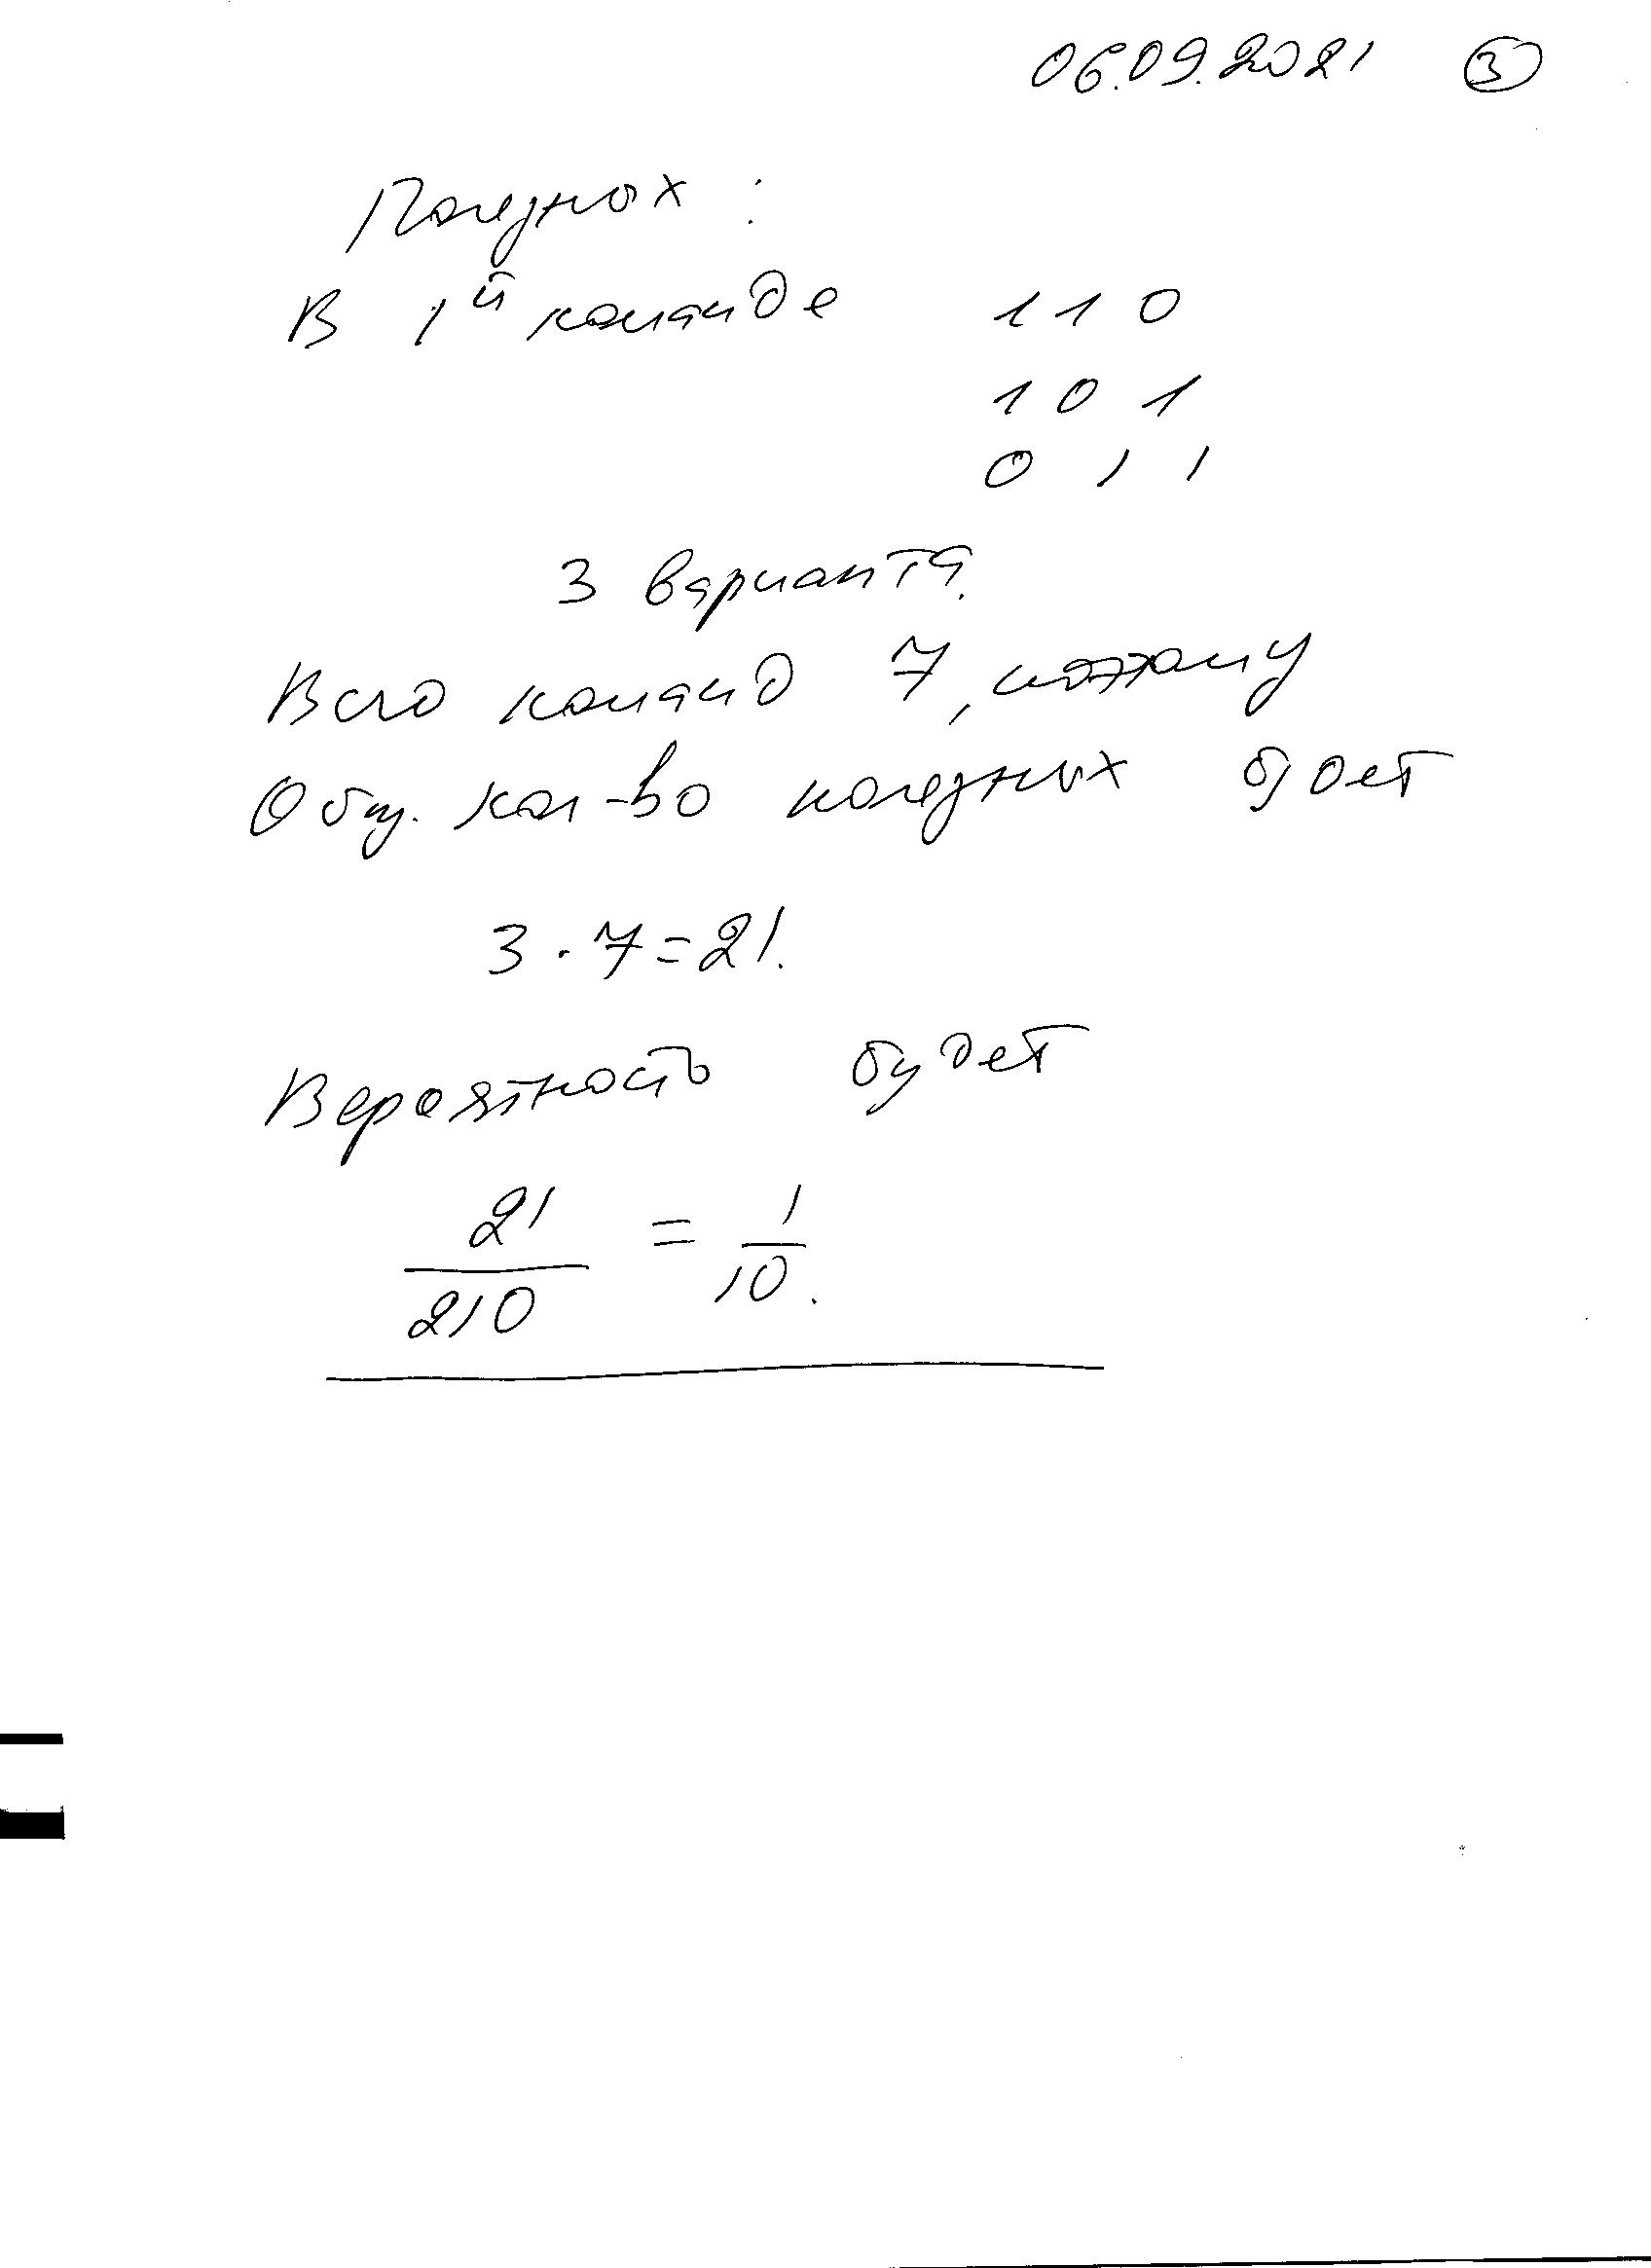 06.09.2021 3
Полезных :
В 1й команде 1 1 0
1 0 1
0 1 1
3 варианта.
Всего команд 7, поэтому
Общ. кол-во полезных будет
3 · 7 = 21.
Вероятность будет
21/210 = 1/10.